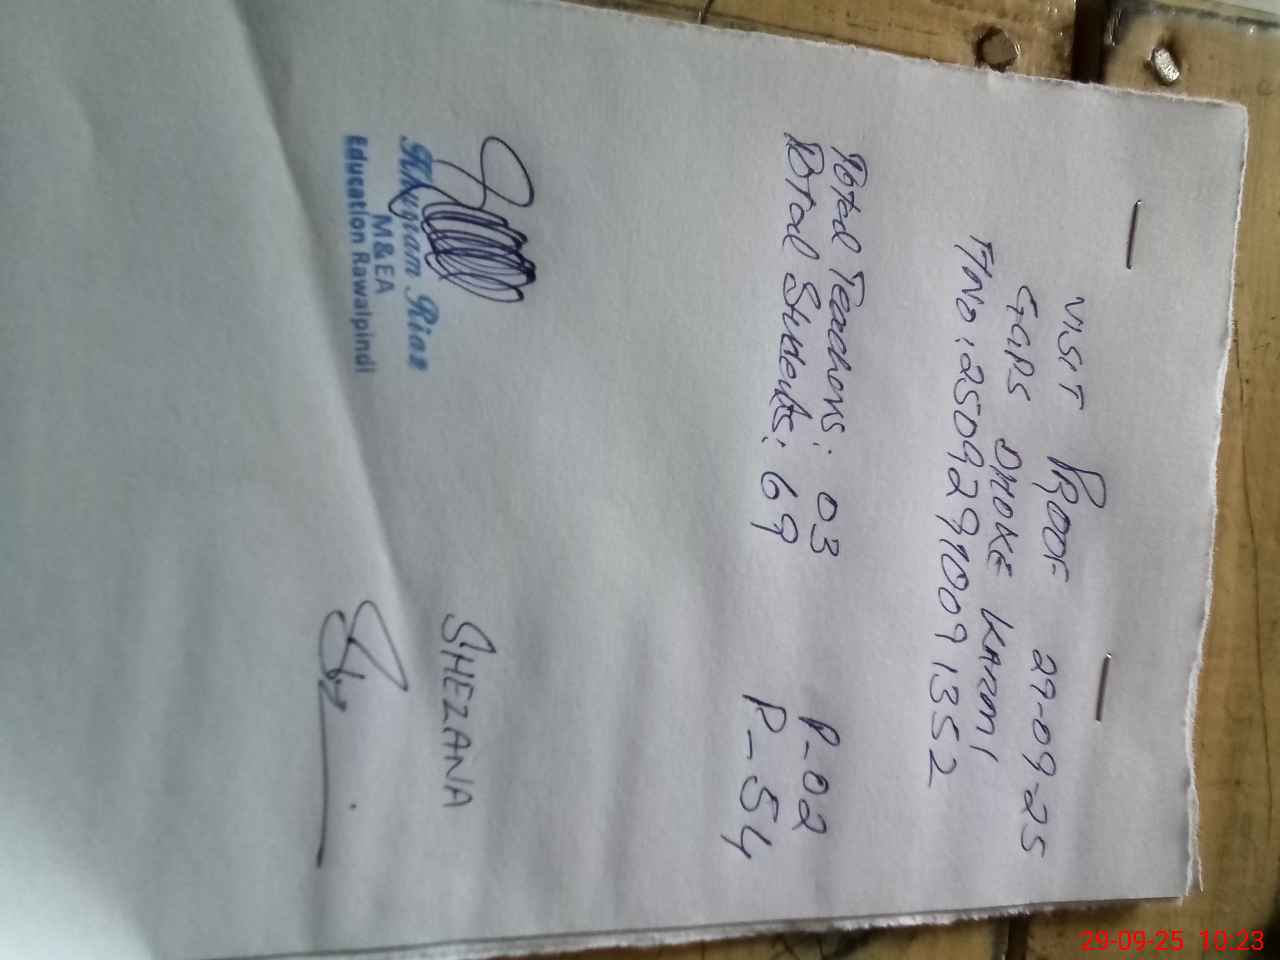 VISIT PROOF 29-09-25
GGPS DHOKE KAZMI
FTNO: 250929100091352
Total Teachers: 03 P-02
Total Students: 69 P-54
Khurram Riaz
M&EA
Education Rawalpindi
SHEZANA
29-09-25 10:23